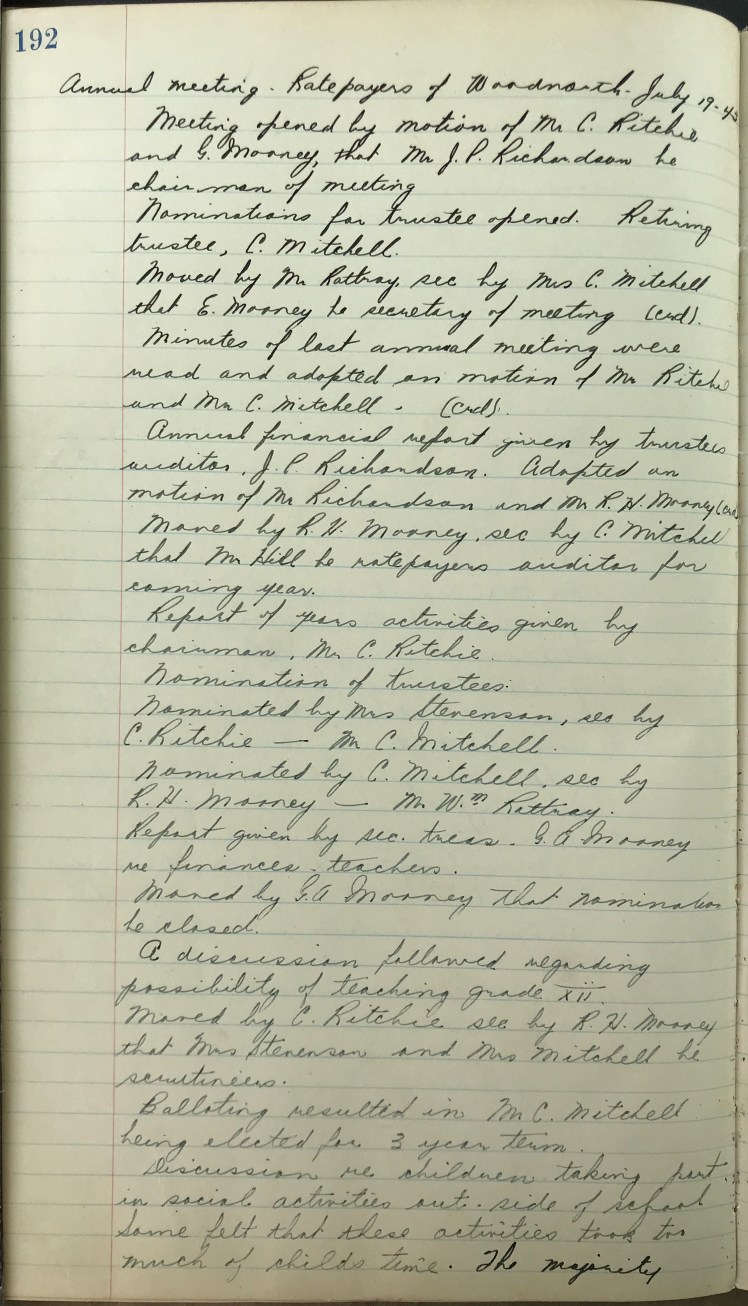 192
Annual meeting - Ratepayers of Woodnorth - July 19 - 45
Meeting opened by motion of Mr C. Ritchie
and G. Mooney, that Mr J. P. Richardson be
chairman of meeting
Nominations for trustee opened. Retiring
trustee, C. Mitchell.
Moved by Mr Rattray, sec by Mrs C. Mitchell
that E. Mooney be secretary of meeting (crd).
Minutes of last annual meeting were
read and adopted on motion of Mr Ritchie
and Mr C. Mitchell - (crd).
Annual financial report given by trustees
auditor, J. P. Richardson. Adopted on
motion of Mr Richardson and Mr R. H. Mooney (crd
Moved by R. H. Mooney, sec by C. Mitchell
that Mr Hill be ratepayers auditor for
coming year.
Report of years activities given by
chairman, Mr C. Ritchie.
Nomination of trustees:
Nominated by Mrs Stevenson, sec by
C. Ritchie — Mr C. Mitchell.
Nominated by C. Mitchell, sec by
R. H. Mooney — Mr Wm Rattray.
Report given by sec. treas. G. A Mooney
re finances - teachers.
Moved by G. A Mooney that nomination
be closed.
A discussion followed regarding
possibility of teaching grade XII.
Moved by C. Ritchie sec by R. H. Mooney
that Mrs Stevenson and Mrs Mitchell be
scrutineers.
Balloting resulted in Mr C. Mitchell
being elected for 3 year term.
Discussion re children taking part
in social activities out-side of school
Some felt that these activities took too
much of childs time. The majority